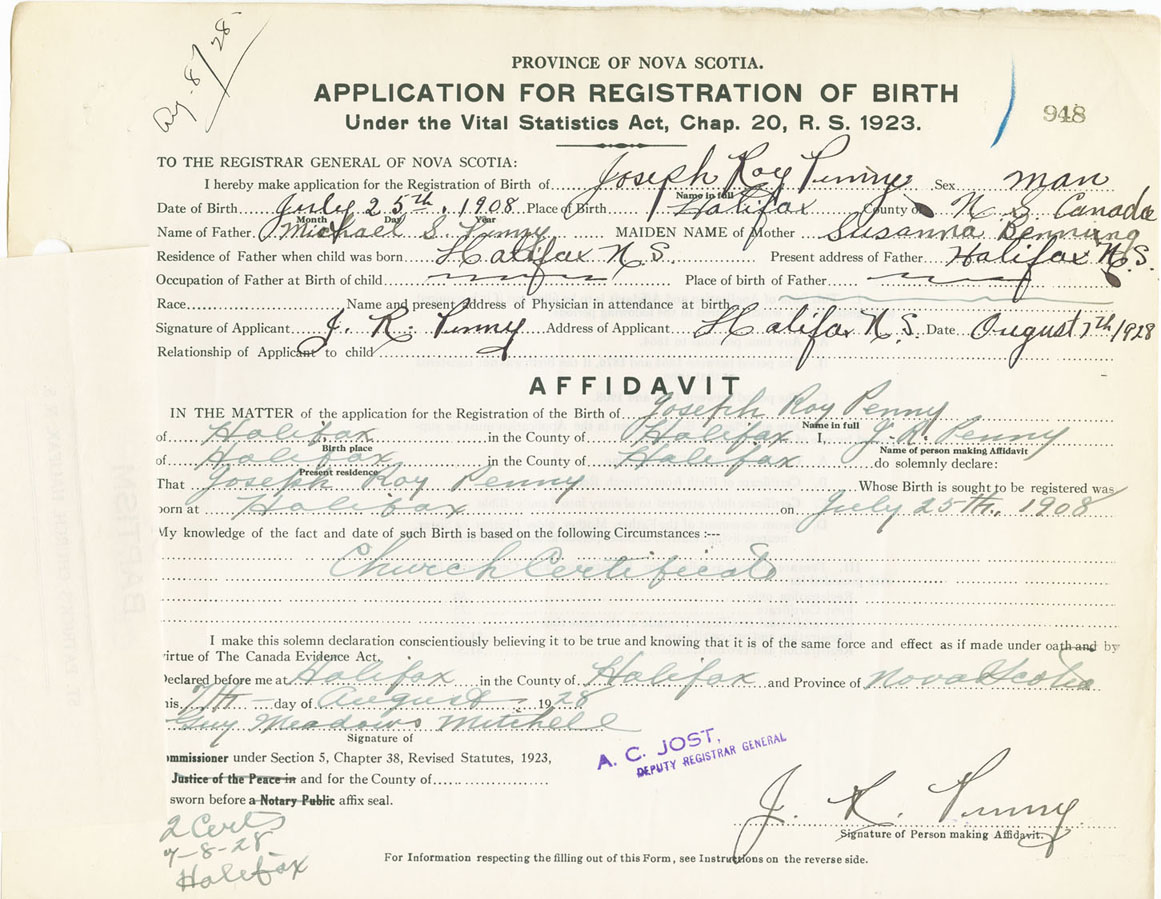 Aug. 8/28
PROVINCE OF NOVA SCOTIA.
APPLICATION FOR REGISTRATION OF BIRTH
Under the Vital Statistics Act, Chap. 20, R. S. 1923.
948
TO THE REGISTRAR GENERAL OF NOVA SCOTIA:
I hereby make application for the Registration of Birth of Joseph Roy Penny Sex man
Name in full
Date of Birth July 25th, 1908 Place of Birth Halifax County of N S. Canada
Month Day Year
Name of Father Michael S. Penny MAIDEN NAME of Mother Susanna Benning
Residence of Father when child was born Halifax N.S. Present address of Father Halifax N.S.
Occupation of Father at Birth of child Place of birth of Father
Race Name and present Address of Physician in attendance at birth
Signature of Applicant J. R. Penny Address of Applicant Halifax N.S. Date August 7th 1928
Relationship of Applicant to child
AFFIDAVIT
IN THE MATTER of the application for the Registration of the Birth of Joseph Roy Penny
Name in full
of Halifax in the County of Halifax I, J. R. Penny
Birth place Name of person making Affidavit
of Halifax in the County of Halifax do solemnly declare:
Present residence
That Joseph Roy Penny Whose Birth is sought to be registered was
born at Halifax on July 25th, 1908
My knowledge of the fact and date of such Birth is based on the following Circumstances :---
Church Certificate
I make this solemn declaration conscientiously believing it to be true and knowing that it is of the same force and effect as if made under oath and by
virtue of The Canada Evidence Act.
Declared before me at Halifax in the County of Halifax and Province of Nova Scotia
this 7th day of August 1928
Guy Meadows Mitchell
Signature of
ommissioner under Section 5, Chapter 38, Revised Statutes, 1923,
Justice of the Peace in and for the County of
sworn before a Notary Public affix seal.
A. C. JOST,
DEPUTY REGISTRAR GENERAL
J. R. Penny
Signature of Person making Affidavit.
2 Certs
7-8-28
Halifax
For Information respecting the filling out of this Form, see Instructions on the reverse side.